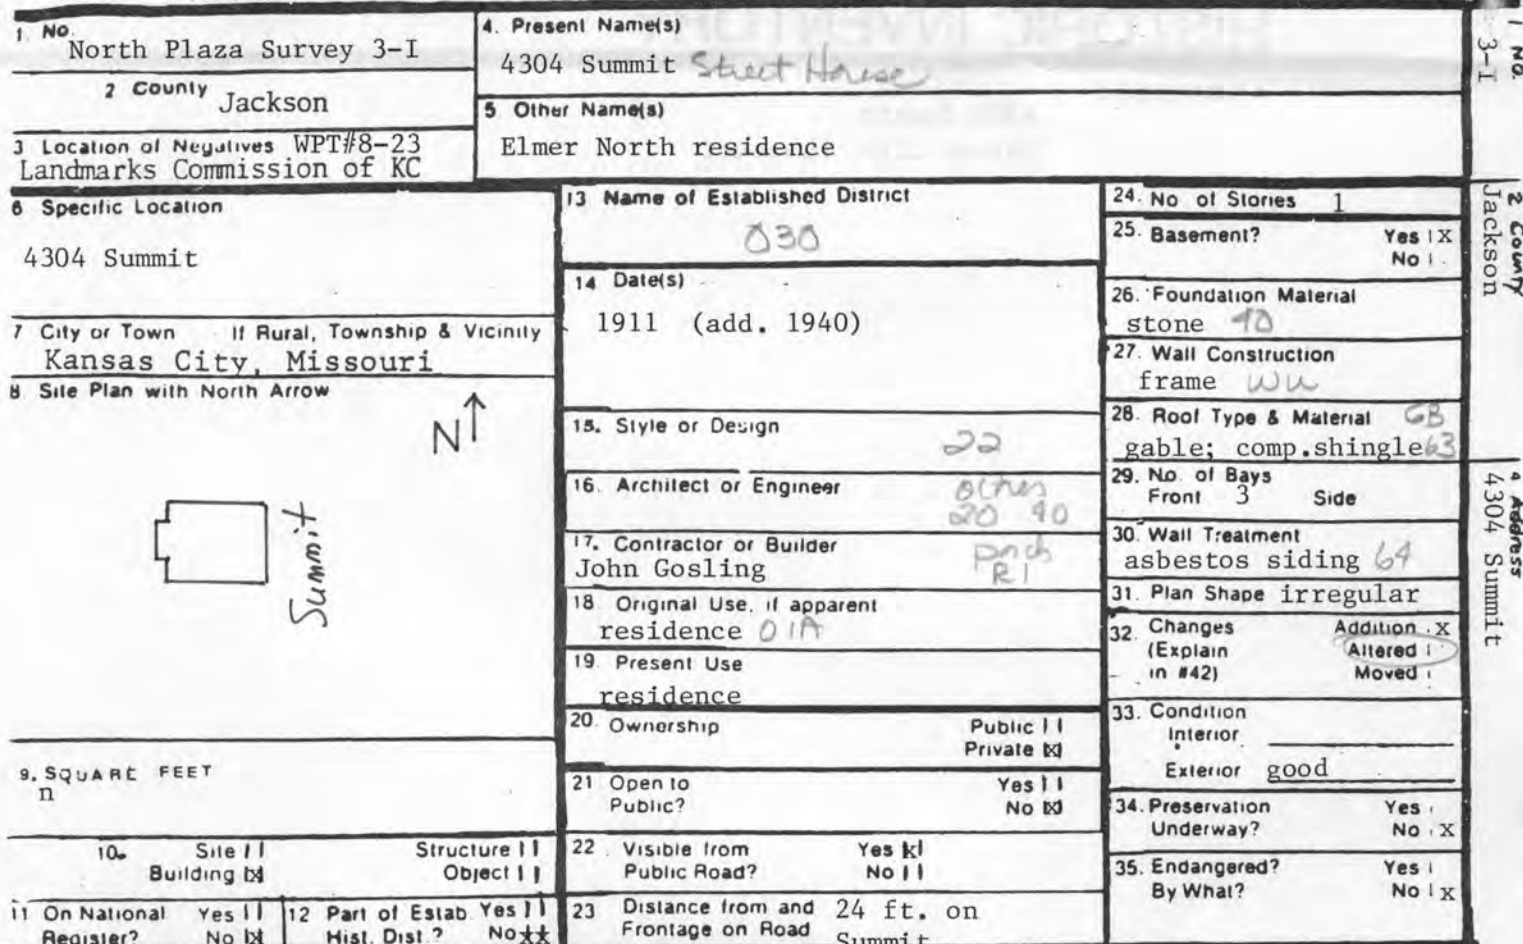 1. No.
North Plaza Survey 3-I
2 County Jackson
3 Location of Negatives WPT#8-23
Landmarks Commission of KC
4. Present Name(s)
4304 Summit Street House
5 Other Name(s)
Elmer North residence
6 Specific Location
4304 Summit
7 City or Town If Rural, Township & Vicinity
Kansas City, Missouri
8 Site Plan with North Arrow
N
Summit
9. SQUARE FEET
n
10. Site Structure
Building X Object
11 On National Yes
Register? No X
12 Part of Estab. Yes
Hist. Dist.? No XX
13 Name of Established District
030
14 Date(s)
1911 (add. 1940)
15. Style or Design
22
16. Architect or Engineer other
20 40
17. Contractor or Builder porch
John Gosling R1
18. Original Use, if apparent
residence 01A
19. Present Use
residence
20. Ownership Public
Private X
21 Open to Yes
Public? No X
22. Visible from Yes X
Public Road? No
23 Distance from and 24 ft. on
Frontage on Road Summit
24. No of Stories 1
25. Basement? Yes X
No
26. Foundation Material
stone 40
27. Wall Construction
frame WW
28. Roof Type & Material GB
gable; comp.shingle 63
29. No. of Bays
Front 3 Side
30. Wall Treatment
asbestos siding 64
31. Plan Shape irregular
32. Changes Addition X
(Explain Altered
in #42) Moved
33. Condition
Interior
Exterior good
34. Preservation Yes
Underway? No X
35. Endangered? Yes
By What? No X
1 No.
3-I
2 County
Jackson
4 Address
4304 Summit